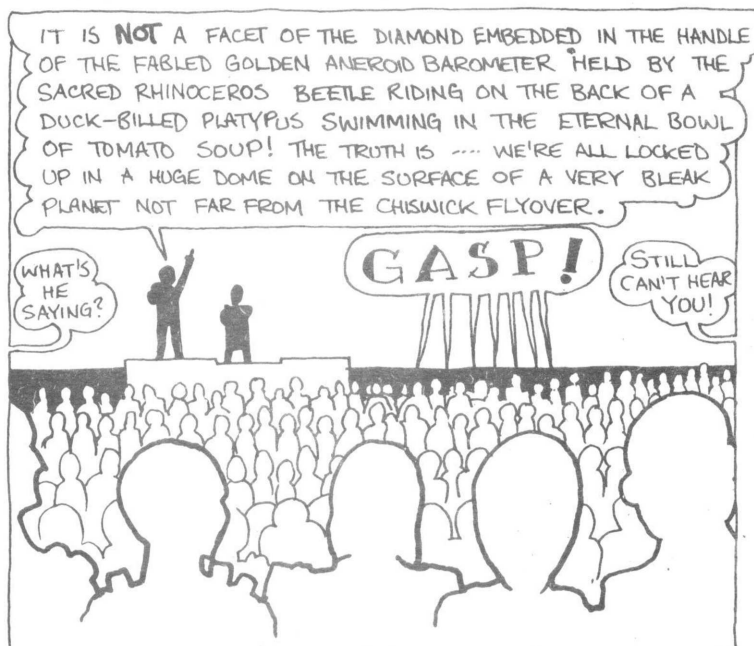 IT IS NOT A FACET OF THE DIAMOND EMBEDDED IN THE HANDLE
OF THE FABLED GOLDEN ANEROID BAROMETER HELD BY THE
SACRED RHINOCEROS BEETLE RIDING ON THE BACK OF A
DUCK-BILLED PLATYPUS SWIMMING IN THE ETERNAL BOWL
OF TOMATO SOUP! THE TRUTH IS .... WE'RE ALL LOCKED
UP IN A HUGE DOME ON THE SURFACE OF A VERY BLEAK
PLANET NOT FAR FROM THE CHISWICK FLYOVER.
WHAT'S
HE
SAYING?
GASP!
STILL
CAN'T HEAR
YOU!